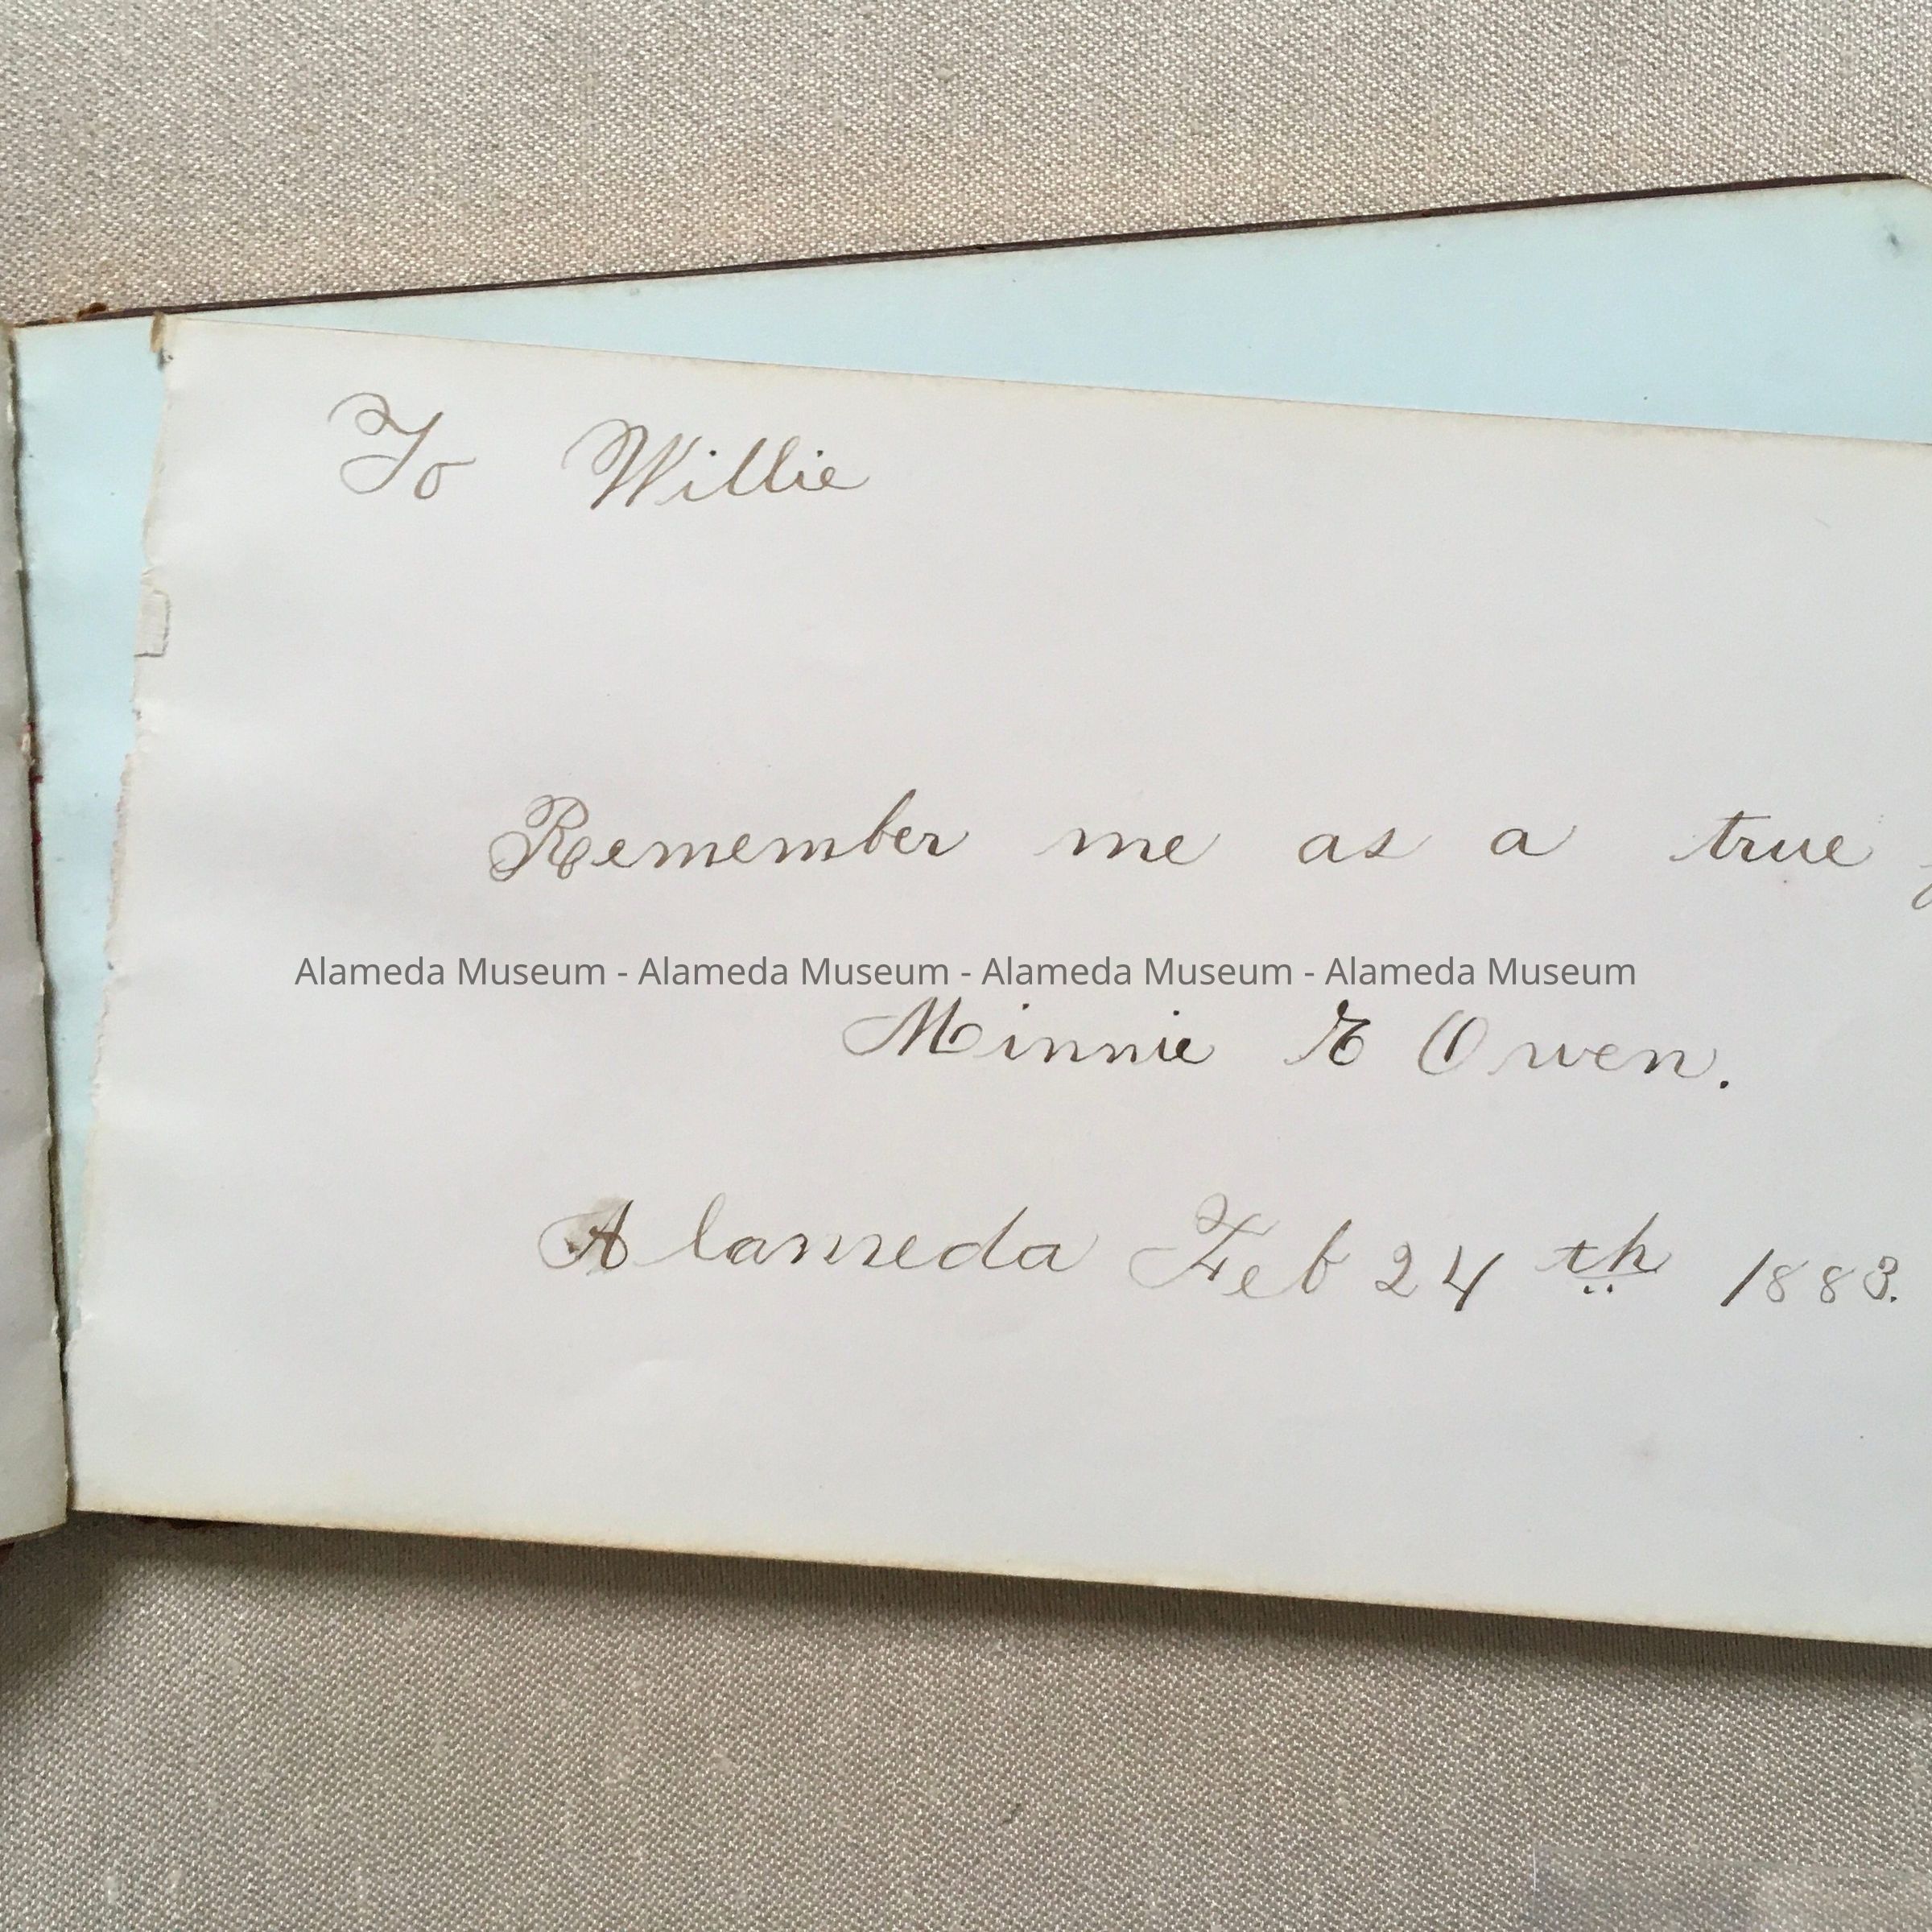 To Willie
Remember me as a true
Alameda Museum - Alameda Museum - Alameda Museum - Alameda Museum
Minnie E Owen.
Alameda Feb 24th 1883.